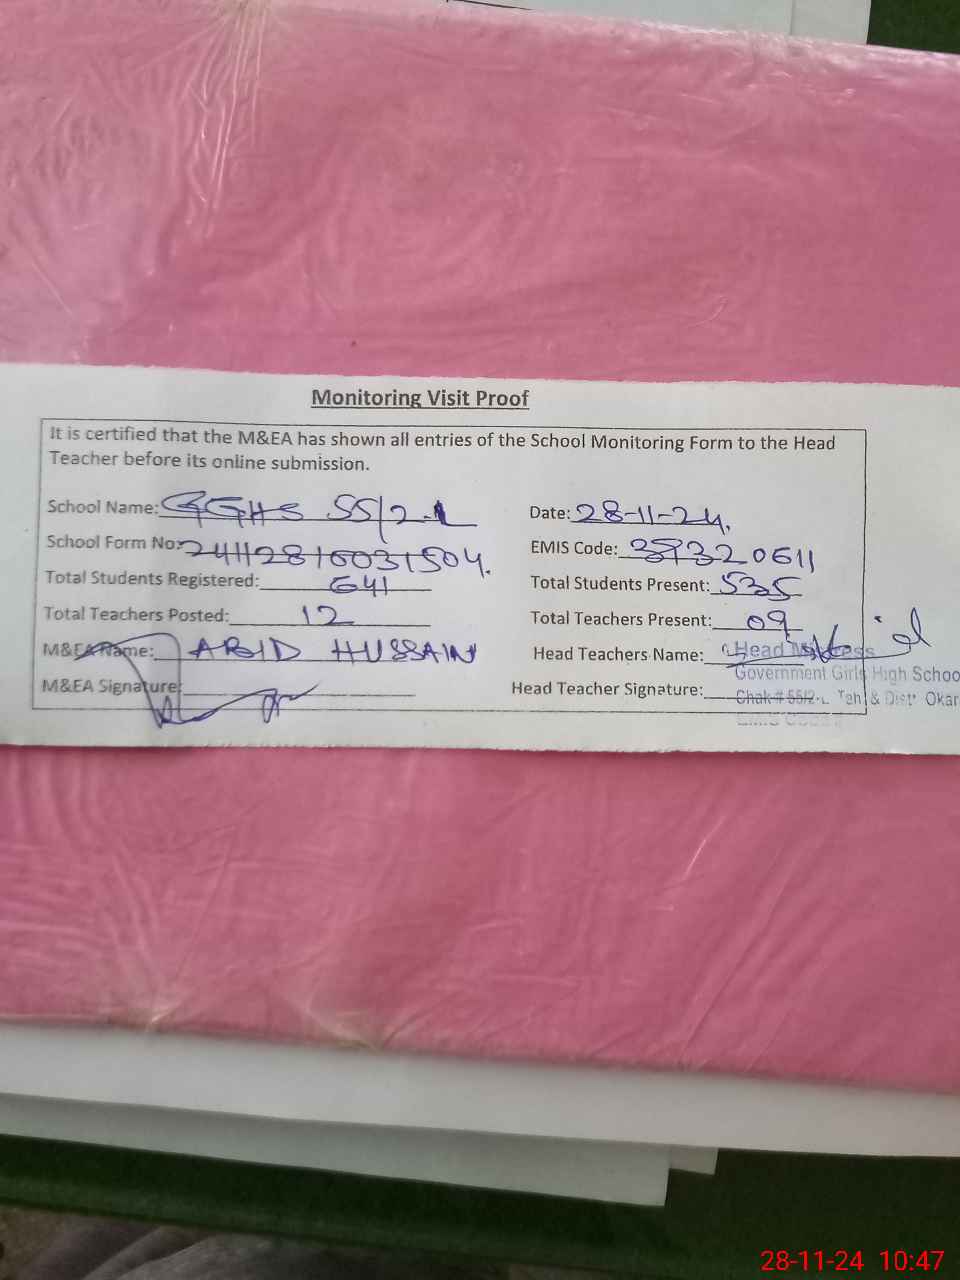 Monitoring Visit Proof
It is certified that the M&EA has shown all entries of the School Monitoring Form to the Head
Teacher before its online submission.
School Name: GGHS 55/2-L Date: 28-11-24.
School Form No: 24112816031504. EMIS Code: 39320611
Total Students Registered: 641 Total Students Present: 535
Total Teachers Posted: 12 Total Teachers Present: 09
M&EA Name: ABID HUSSAIN Head Teachers Name: Head Mistress
Government Girls High Schoo
M&EA Signature: Head Teacher Signature: Chak # 55/2-L Teh & Distt Okar
28-11-24 10:47